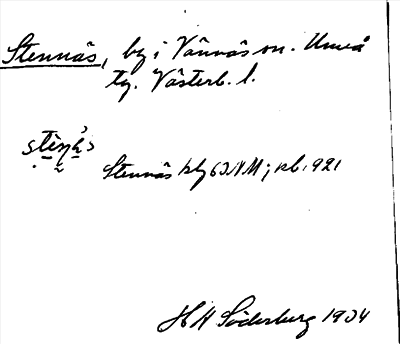 Stennäs, by i Vännäs sn. Umeå
tg. Västerb. l.
Stennäs kbl 63 NM; rb. 921
H H Söderberg 1934